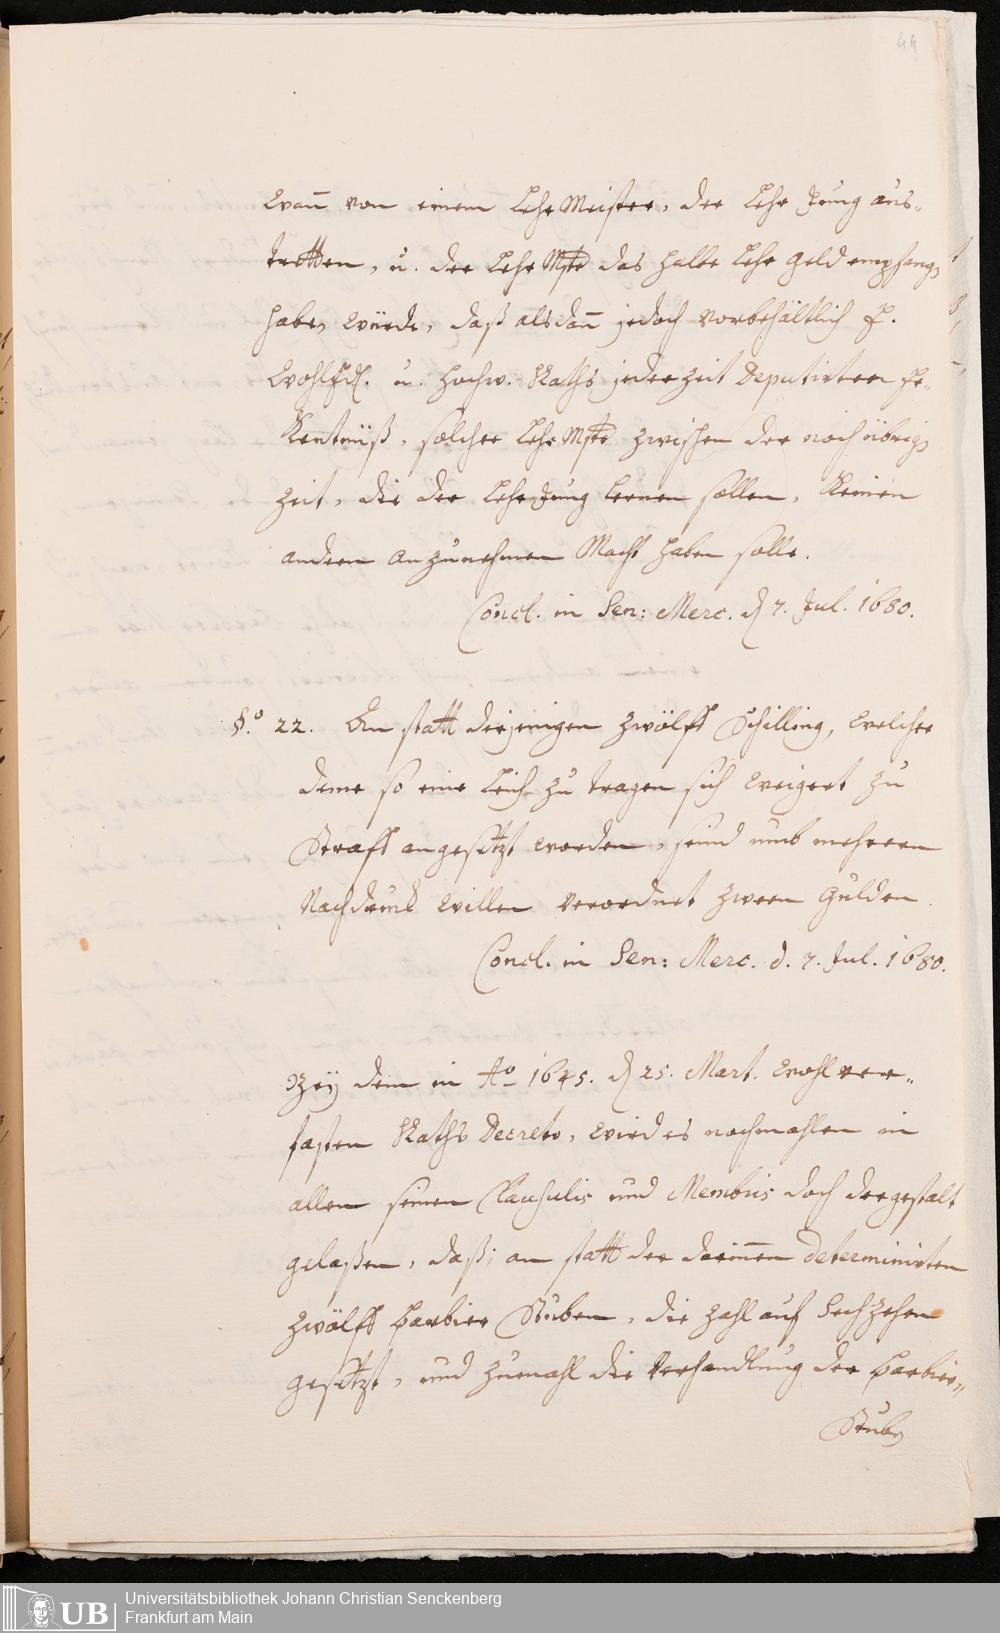 44
Wann von einem Lehr Meister, der Lehr Jung aus-
tretten, u. der Lehr Mstr das halbe Lehr Geld empfangen
haben würde, daß alsdann jedoch vorbehältlich E.
Wohlfdl. u. Hochw. Raths jederzeit Deputirten Er-
kentnüß, solcher Lehr Mstr zwischen der noch übrigen
Zeit, die der Lehr Jung lernen sollen, keinen
andern anzunehmen Macht haben solle.
Concl. in Sen: Merc. d 7. Jul. 1680.
§.º 22. An statt derjenigen zwölff Schilling, welcher
deme so eine Leich zu tragen sich weigert zu
Straff angesetzt worden, seind umb mehrern
Nachdruck willen verordnet zween Gulden.
Concl. in Sen: Merc. d. 7. Jul. 1680.
Bey dem in Aº 1645. d 25. Mart. wohl ver-
fasten Raths Decreto, wird es nochmahlen in
allen seinen Clausulis und Membris doch dergestalt
gelaßen, daß, an statt der darinnen determinirten
zwölff Barbier Stuben, die Zahl auf Sechzehen
gesetzt, und zumahl die Verhandlung der Barbier-
Stuben
Universitätsbibliothek Johann Christian Senckenberg
Frankfurt am Main
UB